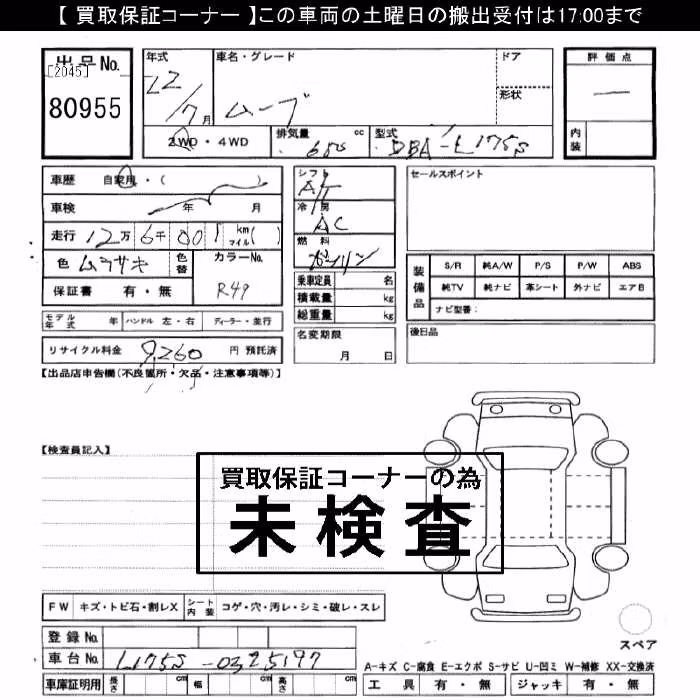 【 買取保証コーナー 】この車両の土曜日の搬出受付は17:00まで
出品No.
[2045]
80955
年式
22/7月
車名・グレード
ムーブ
ドア
形状
評価点
—
内装
2WD・4WD
排気量
650 cc
型式
DBA-L175S
車歴 自家用・( )
車検 年 月
走行 12万 6千 001 km マイル( )
色 ムラサキ
色替
カラーNo.
R49
保証書 有・無
シフト
AT
冷房
AC
燃料
ガソリン
乗車定員 名
積載量 kg
総重量 kg
名変期限
月 日
セールスポイント
装備品
S/R 純A/W P/S P/W ABS
純TV 純ナビ 革シート 外ナビ エアB
ナビ型番：
後日品
モデル年式 年 ハンドル 左・右 ディーラー・並行
リサイクル料金 9,260 円 預託済
【出品店申告欄(不良箇所・欠品・注意事項等)】
【検査員記入】
買取保証コーナーの為
未検査
FW キズ・トビ石・割レX シート内装 コゲ・穴・汚レ・シミ・破レ・スレ
スペア
登録No.
車台No. L175S-0325197
車庫証明用 長さ cm 幅 cm 高さ cm
A-キズ C-腐食 E-エクボ S-サビ U-凹ミ W-補修 XX-交換済
工具 有・無 ジャッキ 有・無